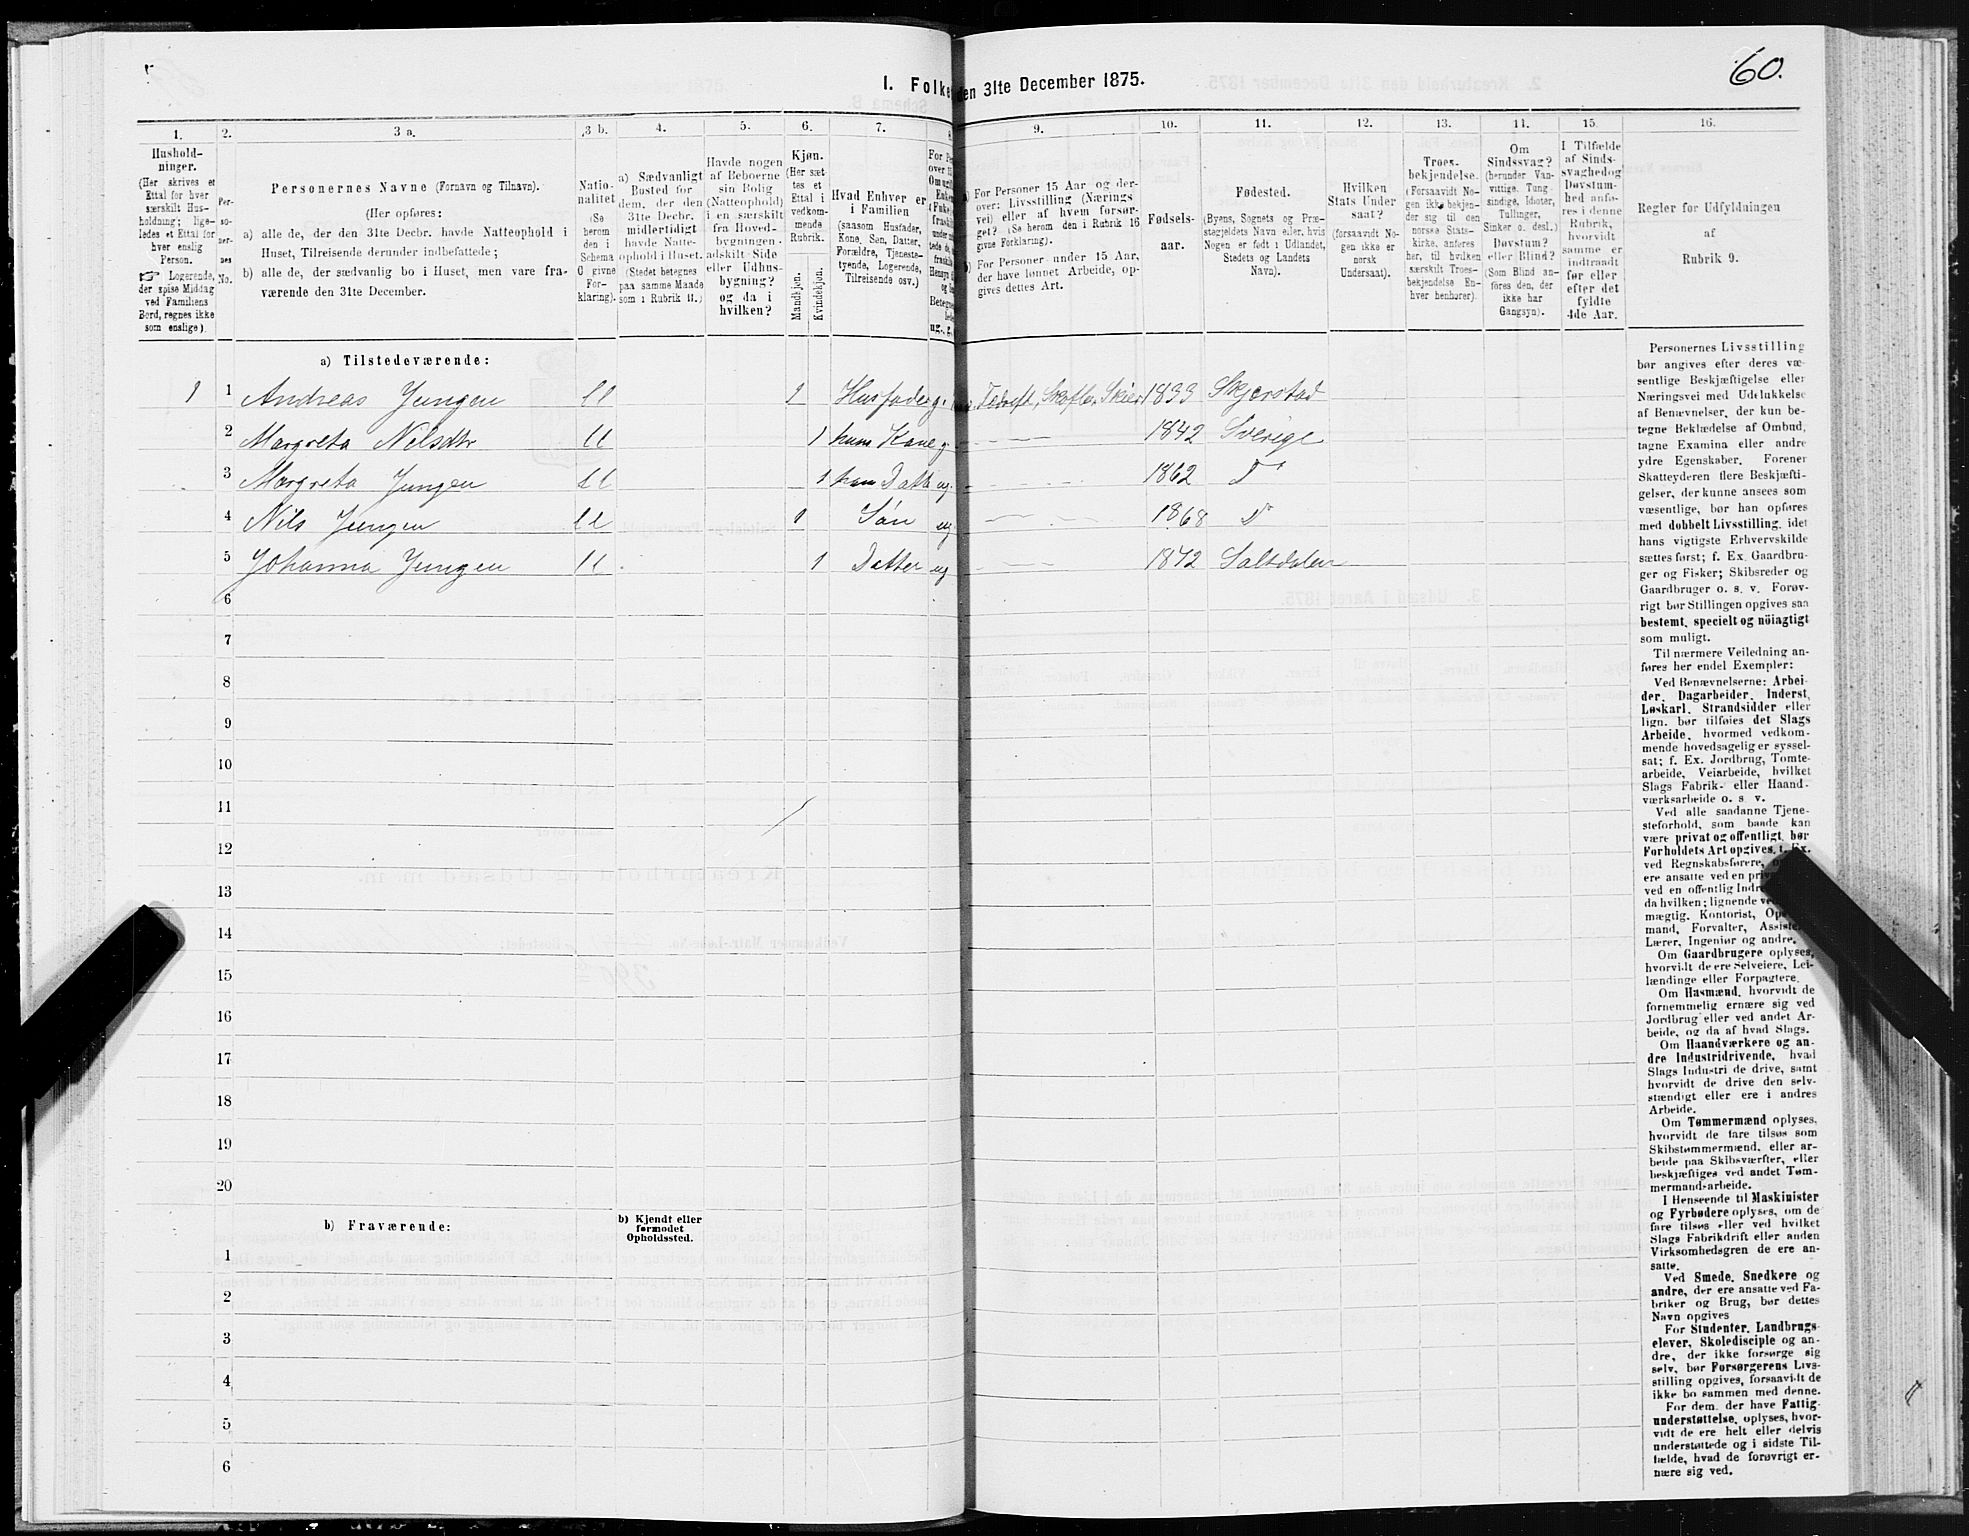 60.
I. Folke
den 31te December 1875.
1. 2. 3 a. 3 b. 4. 5. 6. 7. 8. 9. 10. 11. 12. 13. 14. 15. 16.
Hushold-
ninger.
(Her skrives et
Ettal for hver
særskilt Hus-
holdning; lige-
ledes et Ettal for
hver enslig
Person.
☞ Logerende,
der spise Middag
ved Familiens
Bord, regnes ikke
som enslige).
Per-
so-
ner-
nes
No.
Personernes Navne (Fornavn og Tilnavn).
(Her opføres:
a) alle de, der den 31te Decbr. havde Natteophold i
Huset, Tilreisende derunder indbefattede;
b) alle de, der sædvanlig bo i Huset, men vare fra-
værende den 31te December.
Natio-
nalitet
(Se
herom
den i
Schema
O givne
For-
klaring).
a) Sædvanligt
Bosted for
dem, der den
31te Decbr.
midlertidigt
havde Natte-
ophold i Huset.
(Stedet betegnes
paa samme Maade
som i Rubrik 11.)
Havde nogen
af Beboerne
sin Bolig
(Natteophold)
i en særskilt
fra Hoved-
bygningen
adskilt Side
eller Udhus-
bygning?
og da i
hvilken?
Kjøn.
(Her sæt-
tes et
Ettal i
vedkom-
mende
Rubrik.
Mandkjøn.
Kvindekjøn.
Hvad Enhver er
i Familien
(saasom Husfader,
Kone, Søn, Datter,
Forældre, Tjeneste-
tyende, Logerende,
Tilreisende osv.)
a) For Personer 15 Aar og der-
over: Livsstilling (Nærings
vei) eller af hvem forsør-
get? (Se herom den i Rubrik 16
givne Forklaring).
b) For Personer under 15 Aar,
der have lønnet Arbeide, op-
gives dettes Art.
Fødsels-
aar.
Fødested.
(Byens, Sognets og Præ-
stegjeldets Navn eller, hvis
Nogen er født i Udlandet,
Stedets og Landets
Navn).
Hvilken
Stats Under
saat?
(forsaavidt No-
gen ikke er
norsk
Undersaat).
Troes-
bekjendelse.
(Forsaavidt No-
gen ikke bekjen-
der sig til den
norske Stats-
kirke, anføres
her, til hvilken
særskilt Troes-
bekjendelse En-
hver henhører).
Om
Sindssvag?
(herunder Van-
vittige, Tung-
sindige, Idioter,
Tullinger,
Sinker o. desl.)
Døvstum?
eller Blind?
(Som Blind an-
føres den, der
ikke har
Gangsyn).
I Tilfælde
af Sinds-
svaghed og
Døvstum-
hed anfø-
res i denne
Rubrik,
hvorvidt
samme er
indtraadt
før eller
efter det
fyldte
4de Aar.
Regler for Udfyldningen
af
Rubrik 9.
a) Tilstedeværende:
1 1 Andreas Jungen ll 1 Husfader g. 1833 Skjerstad
2 Margreta Nilsdtr ll 1 hans Kone g 1842 Sverige
3 Margreta Jungen ll 1 ug. 1862 D°
4 Nils Jungen ll 1 Søn ug 1868 D°
5 Johanna Jungen ll 1 Datter ug 1872 Saltdalen
6
7
8
9
10
11
12
13
14
15
16
17
18
19
20
b) Fraværende:
b) Kjendt eller
formodet
Opholdssted.
1
2
3
4
5
6
Personernes Livsstilling
bør angives efter deres væ-
sentlige Beskjæftigelse eller
Næringsvei med Udelukkelse
af Benævnelser, der kun be-
tegne Beklædelse af Ombud,
tagne Examina eller andre
ydre Egenskaber. Forener
Skatteyderen flere Beskjæfti-
gelser, der kunne ansees som
væsentlige, bør han opføres
med dobbelt Livsstilling, idet
hans vigtigste Erhvervskilde
sættes først; f. Ex. Gaardbru-
ger og Fisker; Skibsreder og
Gaardbruger o. s. v. Forøv-
rigt bør Stillingen opgives saa
bestemt, specielt og nöiagtigt
som muligt.
Til nærmere Veiledning an-
føres her endel Exempler:
Ved Benævnelserne: Arbei-
der, Dagarbeider, Inderst,
Løskarl, Strandsidder eller
lign. bør tilføies det Slags
Arbeide, hvormed vedkom-
mende hovedsagelig er syssel-
sat; f. Ex. Jordbrug, Tomte-
arbeide, Veiarbeide, hvilket
Slags Fabrik- eller Haand-
værksarbeide o. s. v.
Ved alle saadanne Tjene-
steforhold, som baade kan
være privat og offentligt, bør
Forholdets Art opgives, t. Ex.
ved Regnskabsførere,
ere ansatte ved en
ved en offentlig
da hvilken; lignende
mægtig, Kontorist,
mand, Forvalter,
Lærer, Ingeniør og andre.
Om Gaardbrugere oplyses,
hvorvidt de ere Selveiere, Lei-
lændinge eller Forpagtere.
Om Husmænd, hvorvidt de
fornemmelig ernære sig ved
Jordbrug eller ved andet Ar-
beide, og da af hvad Slags.
Om Haandværkere og an-
dre Industridrivende, hvad
Slags Industri de drive, samt
hvorvidt de drive den selv-
stændigt eller ere i andres
Arbeide.
Om Tømmermænd oplyses,
hvorvidt de fare tilsøs som
Skibstømmermænd, eller ar-
beide paa Skibsværfter, eller
beskjæftiges ved andet Tøm-
mermandsarbeide.
I Henseende til Maskinister
og Fyrbødere oplyses, om de
fare tilsøs eller ved hvilket
Slags Fabrikdrift eller anden
Virksomhedsgren de ere an-
satte.
Ved Smede, Snedkere og
andre, der ere ansatte ved Fa-
briker og Brug, bør dettes
Navn opgives
For Studenter, Landbrugs-
elever, Skoledisciple og an-
dre, der ikke forsørge sig
selv, bør Forsørgerens Livs-
stilling opgives, forsaavidt de
ikke bo sammen med denne.
For dem, der have Fattig-
understøttelse, oplyses, hvor-
vidt de ere helt eller delvis
understøttede og i sidste Til-
fælde, hvad de forøvrigt er-
nære sig ved.